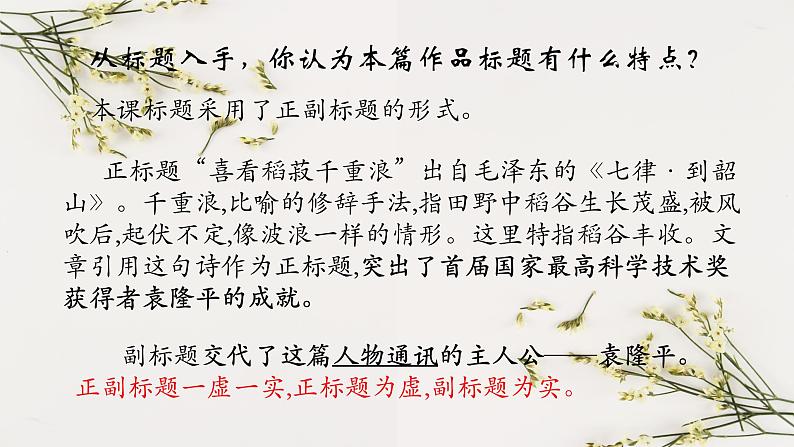 从标题入手，你认为本篇作品标题有什么特点？
本课标题采用了正副标题的形式。
正标题“喜看稻菽千重浪”出自毛泽东的《七律·到韶
山》。千重浪,比喻的修辞手法,指田野中稻谷生长茂盛,被风
吹后,起伏不定,像波浪一样的情形。这里特指稻谷丰收。文
章引用这句诗作为正标题,突出了首届国家最高科学技术奖
获得者袁隆平的成就。
副标题交代了这篇人物通讯的主人公——袁隆平。
正副标题一虚一实,正标题为虚,副标题为实。